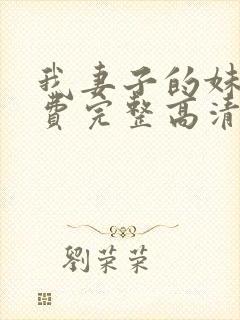 我妻子的妹
費完整高清
劉荣荣